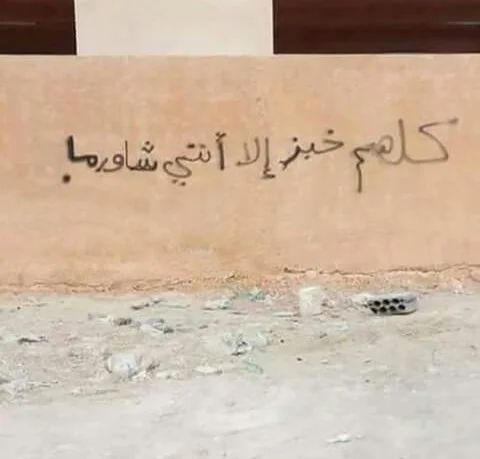 كلهم خبز إلا أنتي شاورما!